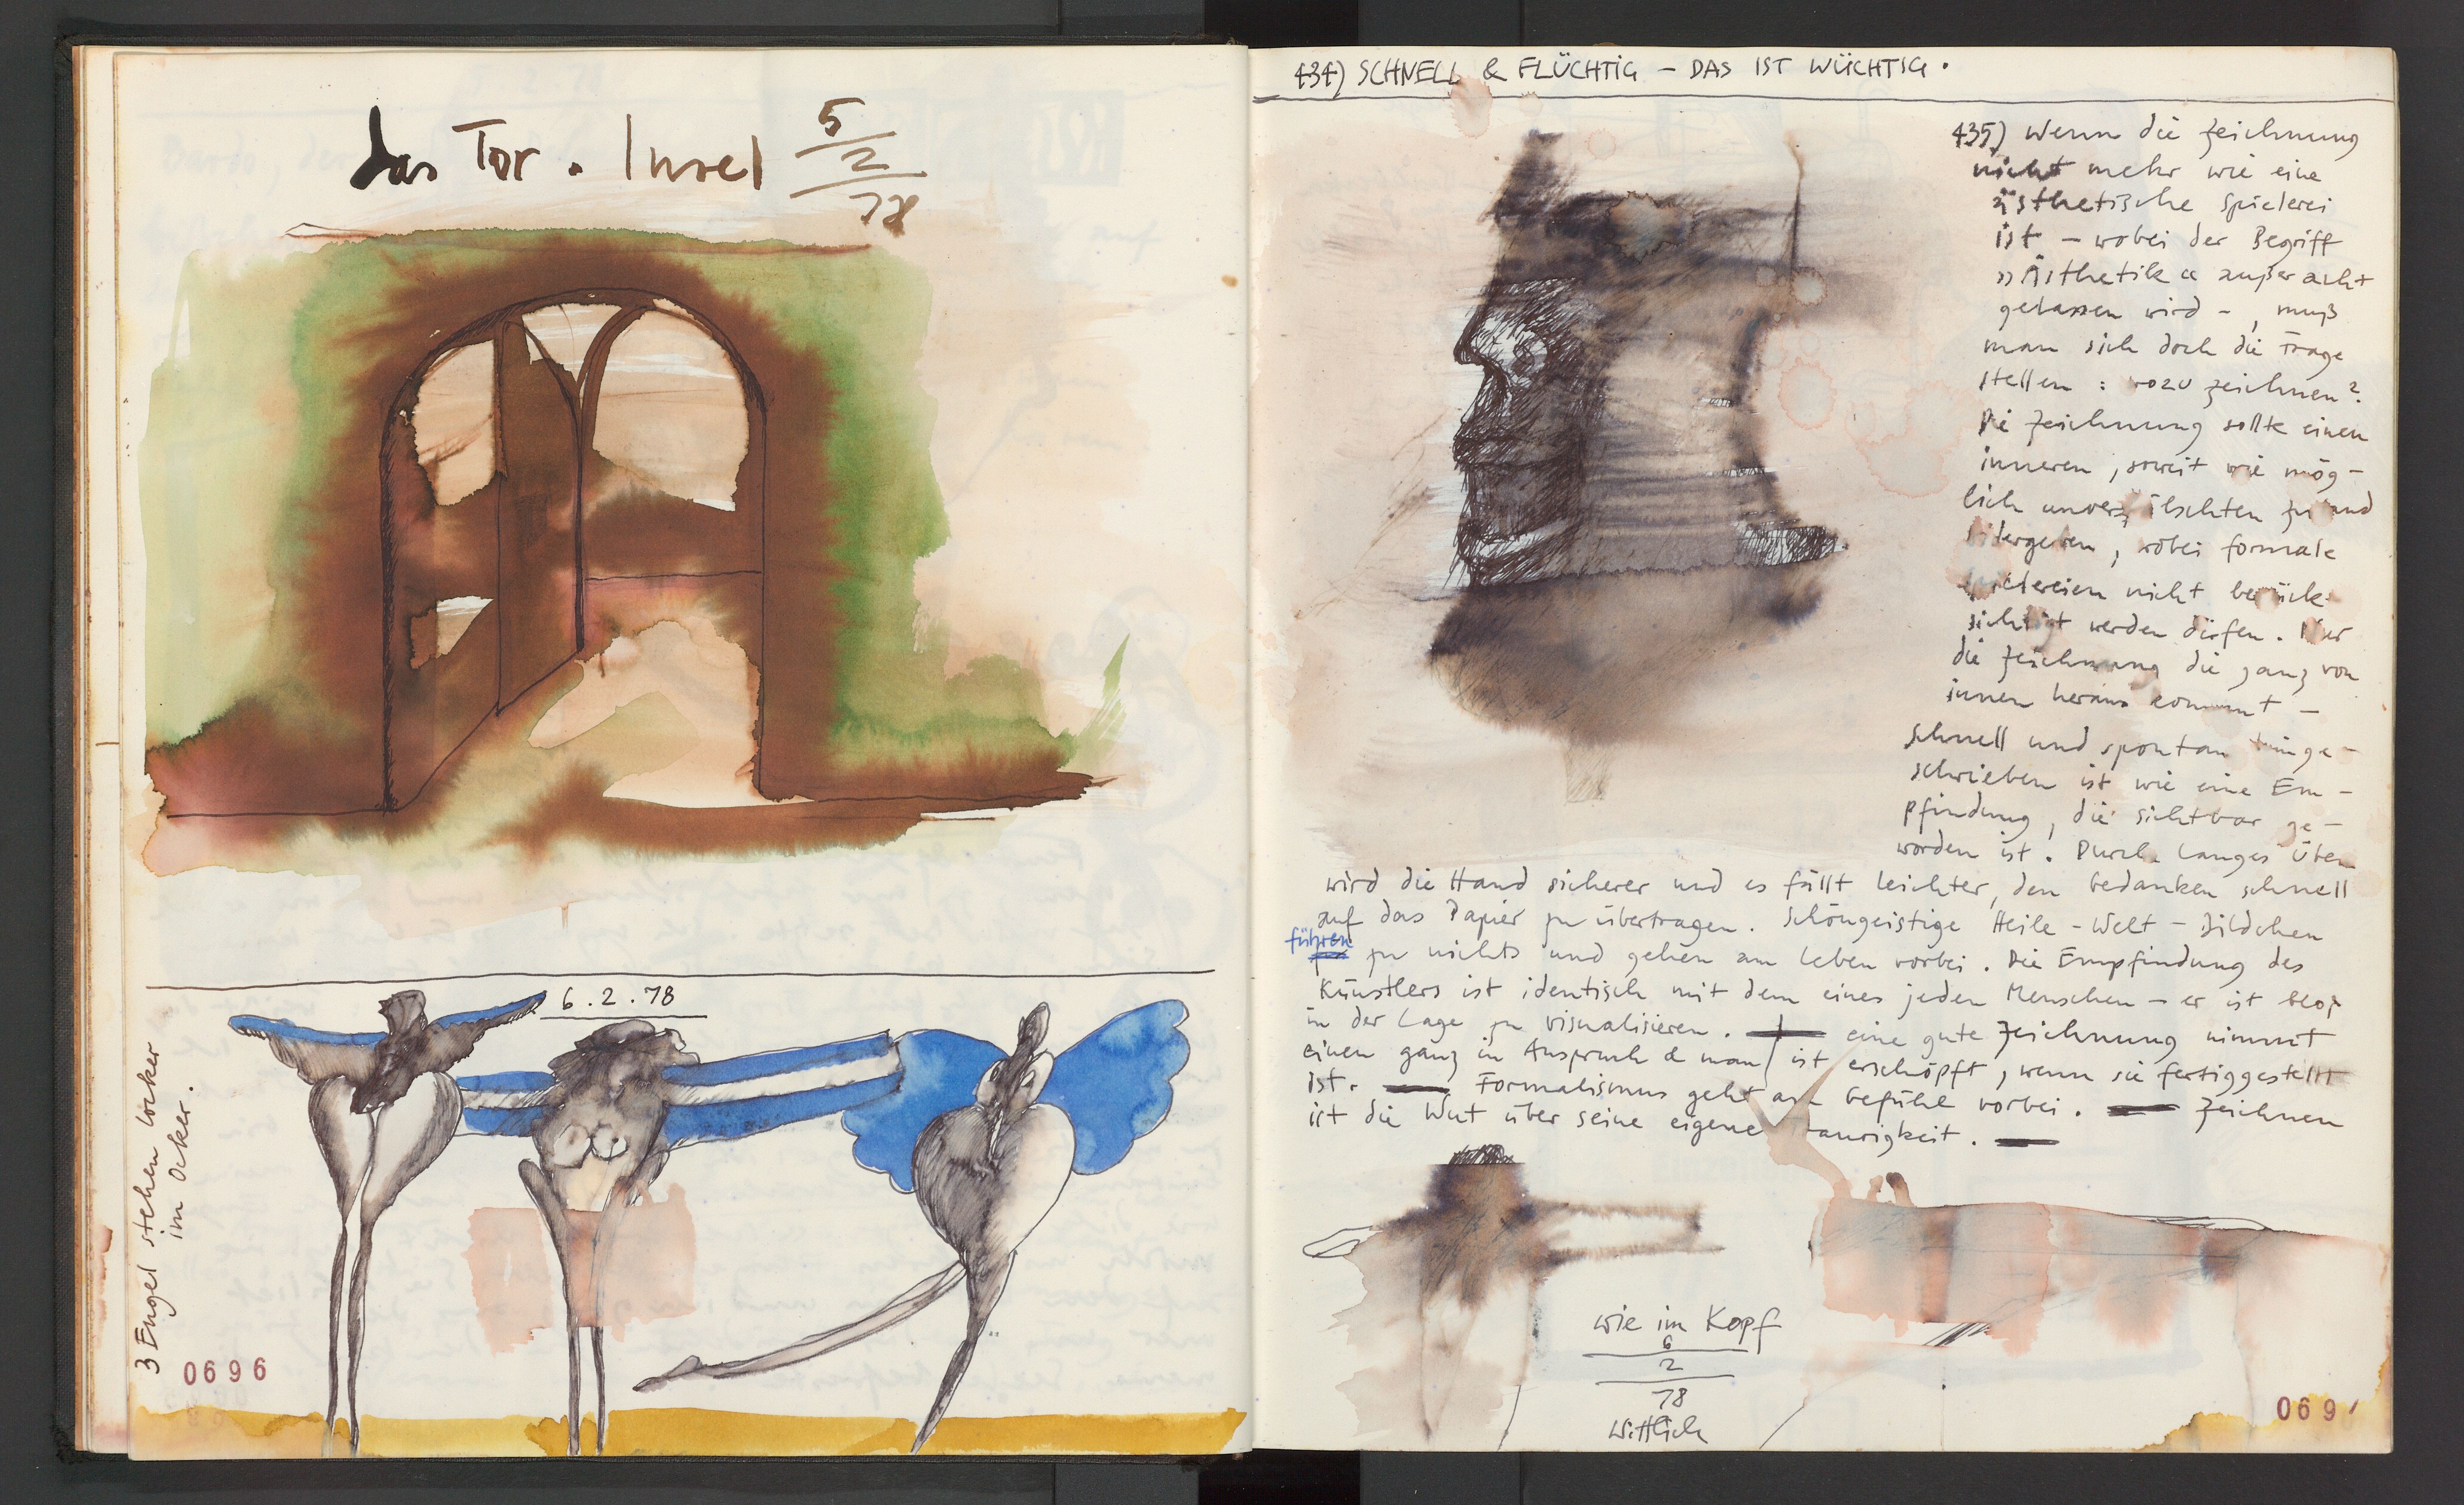 das Tor. Insel 5/2/78
6.2.78
3 Engel stehen locker
im Ocker.
0696
434) SCHNELL & FLÜCHTIG – DAS IST WÜCHTIG.
435) Wenn die Zeichnung
nicht mehr wie eine
ästhetische Spielerei
ist – wobei der Begriff
»Ästhetik« außer acht
gelassen wird –, muß
man sich doch die Frage
stellen: wozu zeichnen?
Die Zeichnung sollte einen
inneren, soweit wie mög-
lich unverfälschten Zustand
wiedergeben, wobei formale
Spielereien nicht berück-
sichtigt werden dürfen. Nur
die Zeichnung die ganz von
innen heraus kommt –
schnell und spontan hinge-
schrieben ist wie eine Em-
pfindung, die sichtbar ge-
worden ist. Durch langes Üben
wird die Hand sicherer und es fällt leichter, den Gedanken schnell
auf das Papier zu übertragen. Schöngeistige Heile-Welt-Bildchen
führen zu nichts und gehen am Leben vorbei. Die Empfindung des
Künstlers ist identisch mit dem eines jeden Menschen – er ist bloß
in der Lage zu visualisieren. — eine gute Zeichnung nimmt
einen ganz in Anspruch & man ist erschöpft, wenn sie fertiggestellt
ist. — Formalismus geht am Gefühl vorbei. — Zeichnen
ist die Wut über seine eigene Traurigkeit. —
wie im Kopf
6
2
78
Wittlich
069